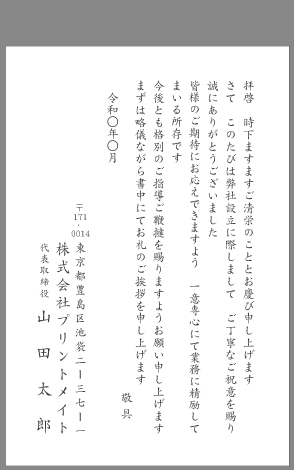 拝啓　時下ますますご清栄のこととお慶び申し上げます
さて　このたびは弊社設立に際しまして　ご丁寧なご祝意を賜り
誠にありがとうございました
皆様のご期待にお応えできますよう　一意専心にて業務に精励して
まいる所存です
今後とも格別のご指導ご鞭撻を賜りますようお願い申し上げます
まずは略儀ながら書中にてお礼のご挨拶を申し上げます
敬具
令和〇年〇月
〒171-0014
東京都豊島区池袋二ー三七ー一
株式会社プリントメイト
代表取締役　山田太郎